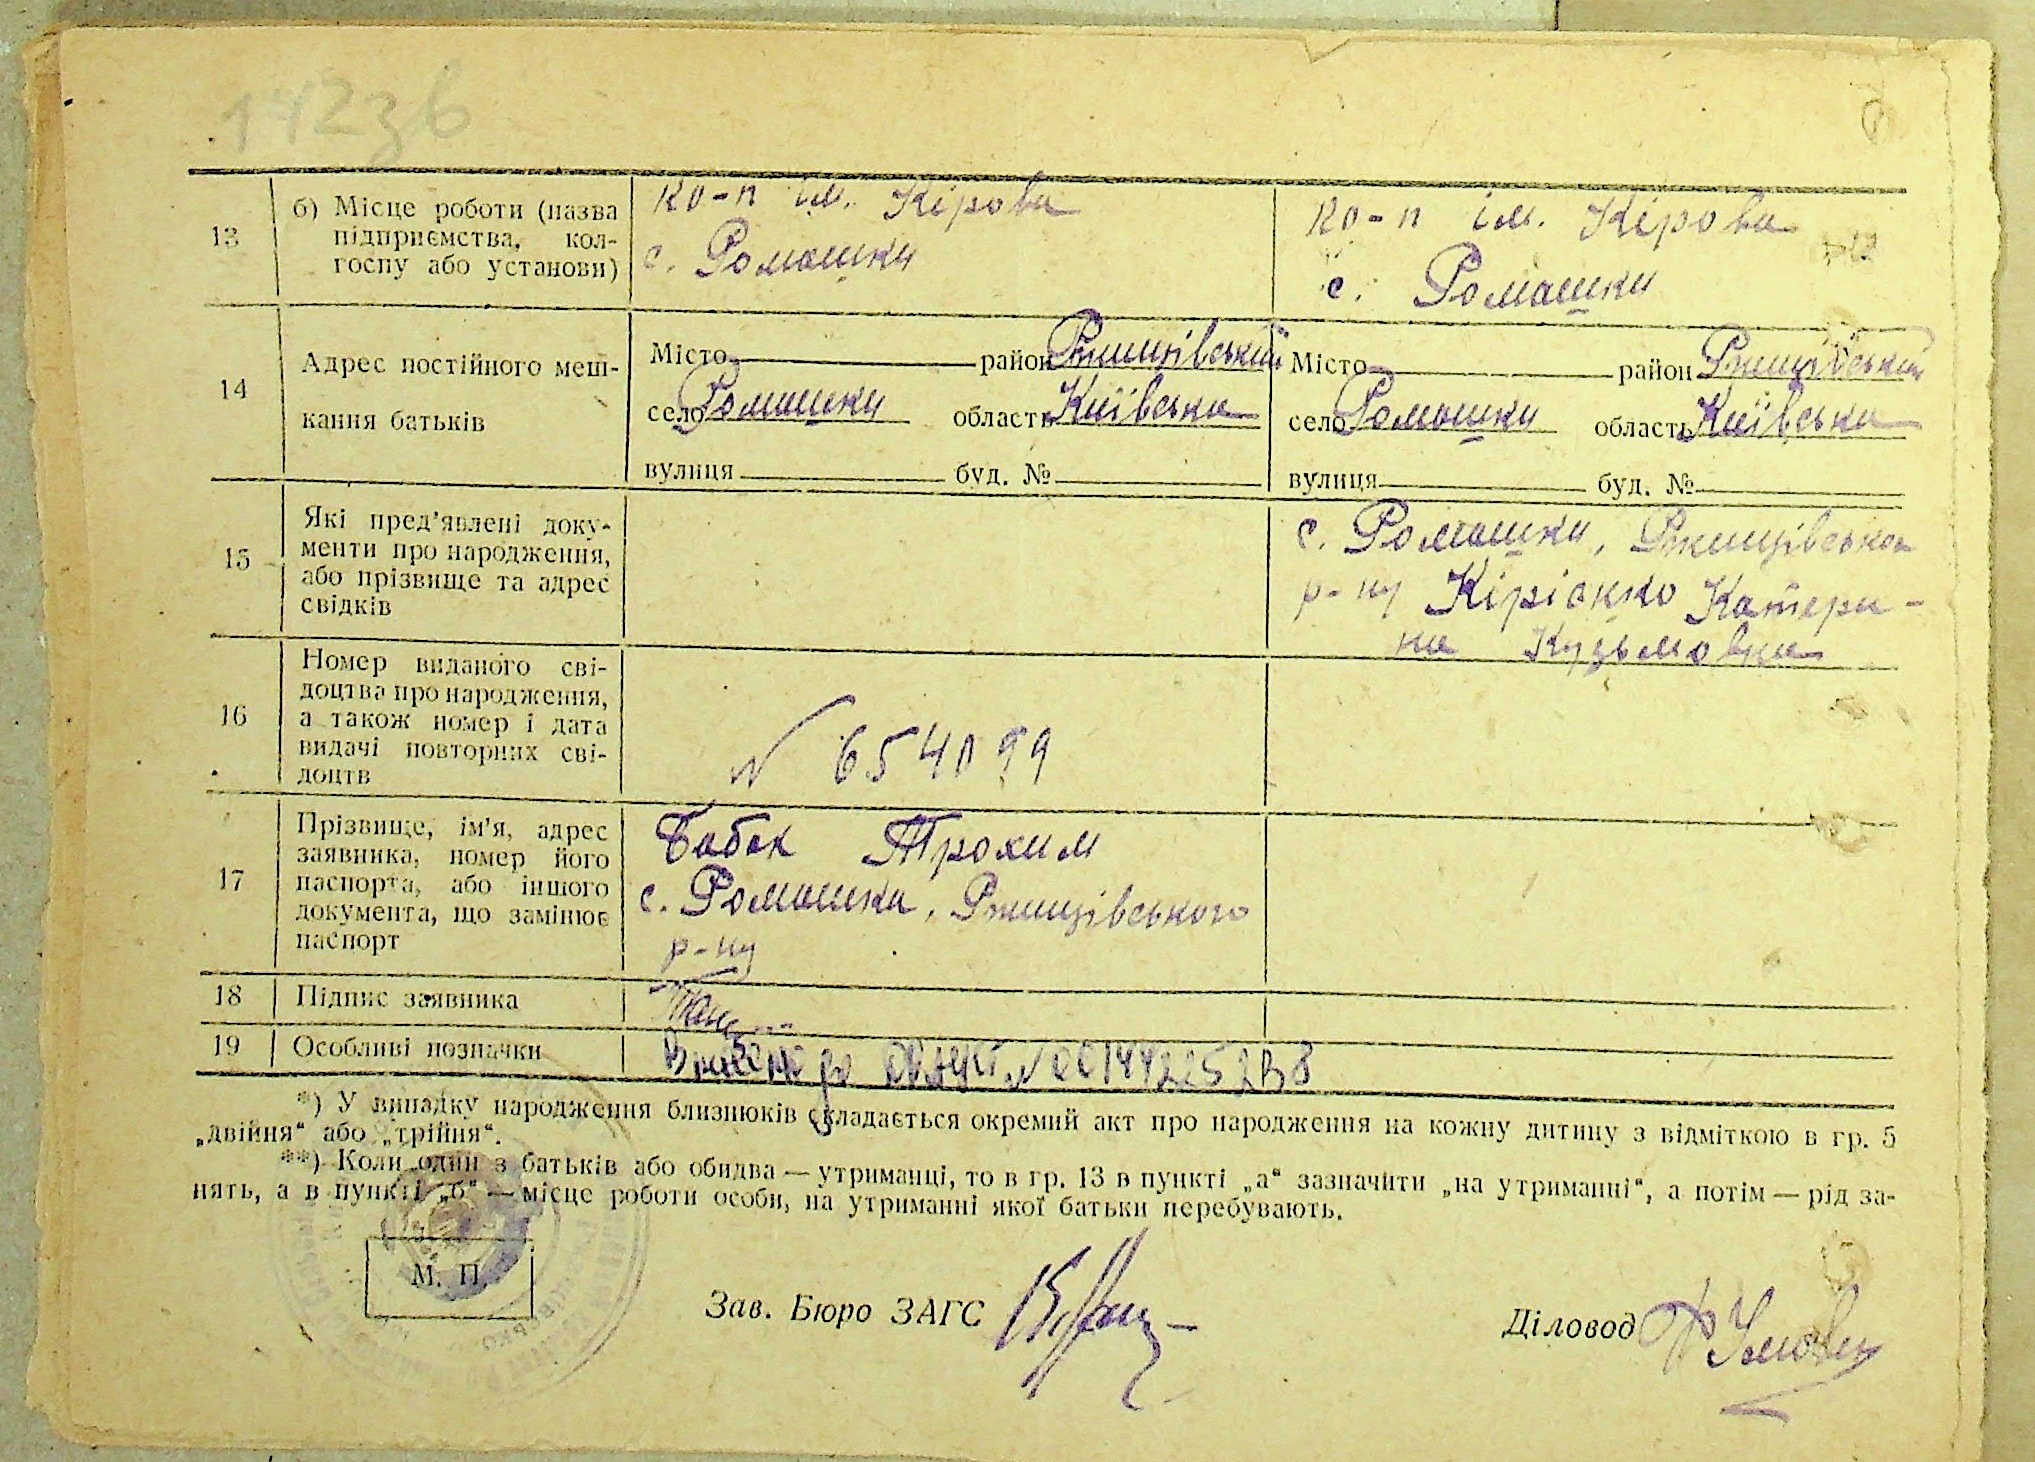 142зв
13
б) Місце роботи (назва
підприємства, кол-
госпу або установи)
ко-п ім. Кірова
с. Ромашки
ко-п ім. Кірова
с. Ромашки
14
Адрес постійного меш-
кання батьків
Місто район Ржищівський
село Ромашки область Київська
вулиця буд. №
Місто район Ржищівський
село Ромашки область Київська
вулиця буд. №
15
Які пред'явлені доку-
менти про народження,
або прізвище та адрес
свідків
с. Ромашки, Ржищівська
р-ну Кіріянко Катери-
на Кузьмовна
16
Номер виданого сві-
доцтва про народження,
а також номер і дата
видачі повторних сві-
доцтв
N 654099
17
Прізвище, ім'я, адрес
заявника, номер його
паспорта, або іншого
документа, що замінює
паспорт
Бабак Трохим
с. Ромашки, Ржищівського
р-ну
18
Підпис заявника
19
Особливі позначки
*) У випадку народження близнюків складається окремий акт про народження на кожну дитину з відміткою в гр. 5
„двійня“ або „трійня“.
**) Коли один з батьків або обидва — утриманці, то в гр. 13 в пункті „а“ зазначити „на утриманні“, а потім — рід за-
нять, а в пункті „б“ — місце роботи особи, на утриманні якої батьки перебувають.
М. П.
Зав. Бюро ЗАГС
Діловод